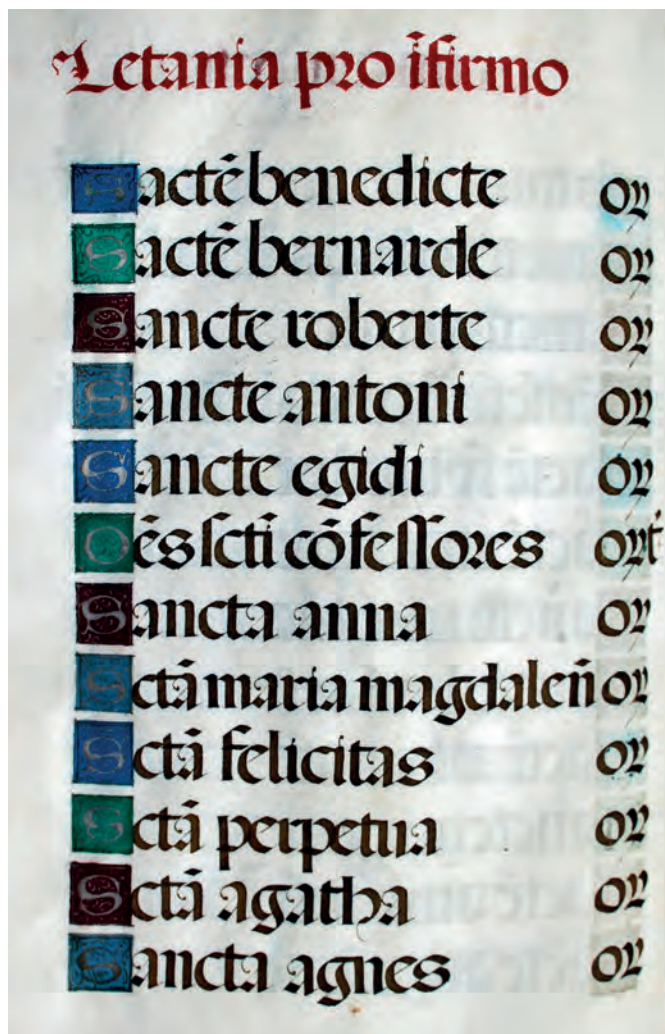 Letania pro īfirmo
Sactē benedicte oꝝ
Sactē bernarde oꝝ
Sancte roberte oꝝ
Sancte antoni oꝝ
Sancte egidi oꝝ
Oēs ſcti cōfeſſores oꝝt
Sancta anna oꝝ
Sctā maria magdaleñ oꝝ
Sctā felicitas oꝝ
Sctā perpetua oꝝ
Sctā agatha oꝝ
Sancta agnes oꝝ